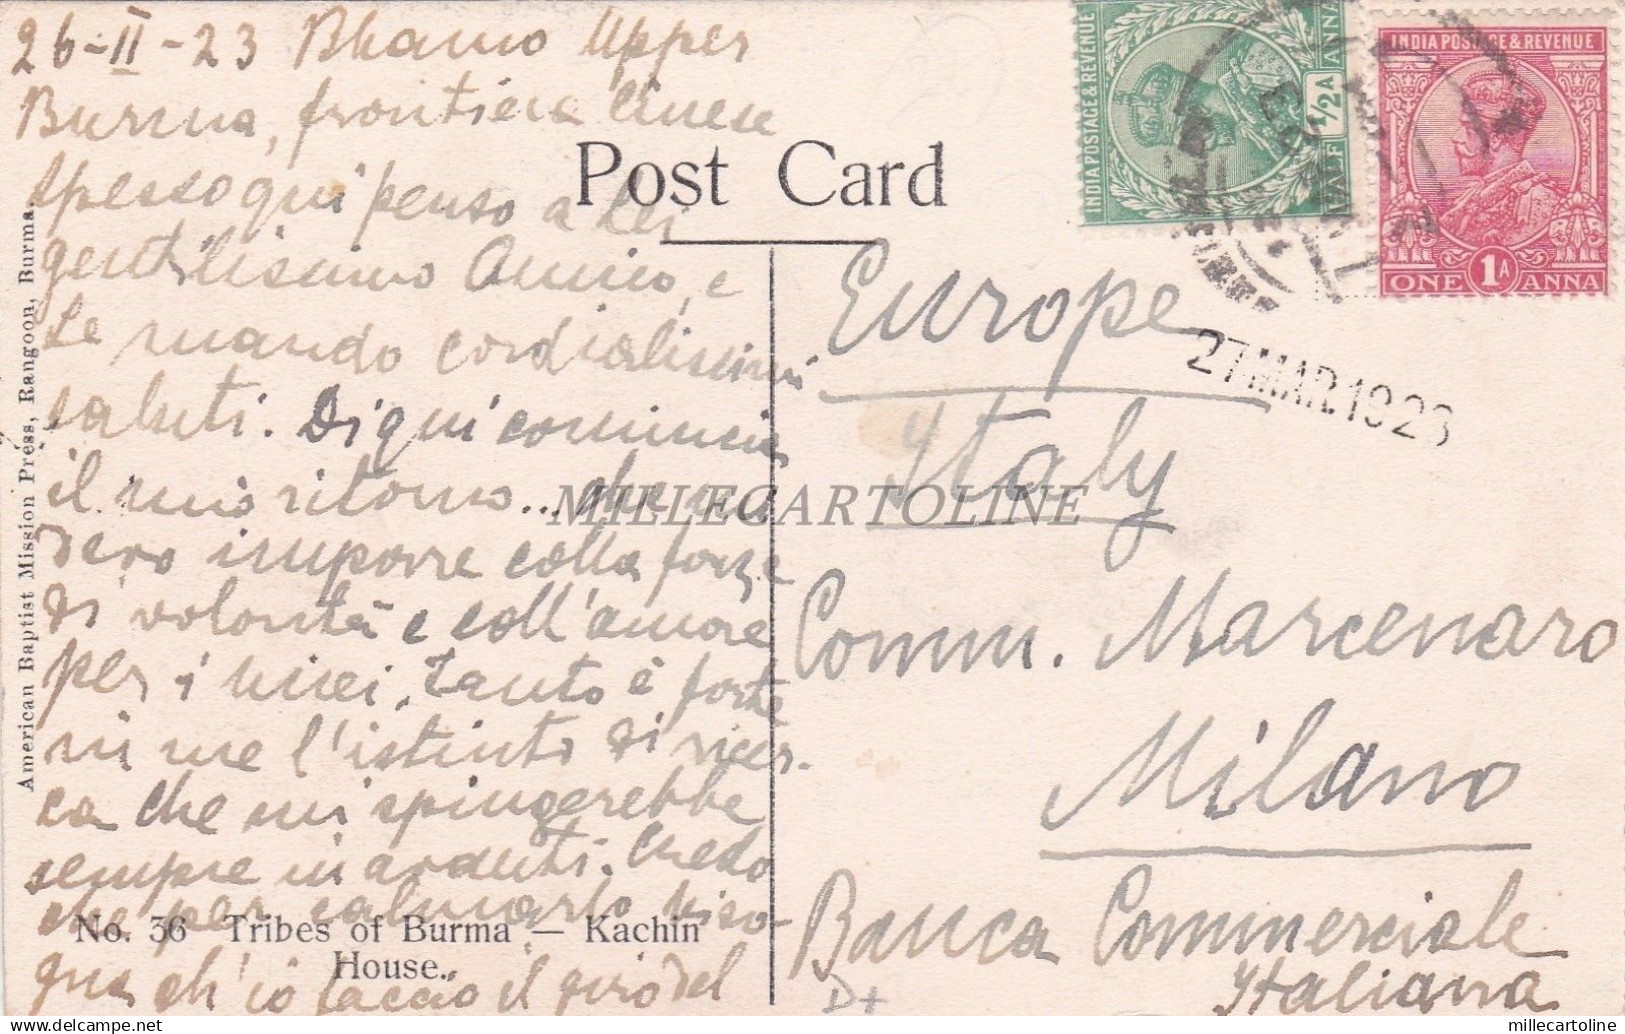 26-II-23 Bhamo Upper
Burma, frontiera cinese
Spesso qui penso a Lei
gentilissimo Amico, e
Le mando cordialissimi
saluti. Di qui comincia
il mio ritorno... che
devo imporre colla forza
di volontà e coll'amore
per i miei, tanto è forte
in me l'istinto di ricer-
ca che mi spingerebbe
sempre in avanti. Credo
che per calmarlo biso-
gna ch'io faccio il giro del
Post Card
American Baptist Mission Press, Rangoon, Burma.
No. 36 Tribes of Burma — Kachin
House.
INDIA POSTAGE & REVENUE
HALF 1/2A ANNA
INDIA POSTAGE & REVENUE
ONE 1A ANNA
27 MAR. 1923
Europe
Italy
Comm. Marcenaro
Milano
Banca Commerciale
Italiana
D+
MILLECARTOLINE
millecartoline